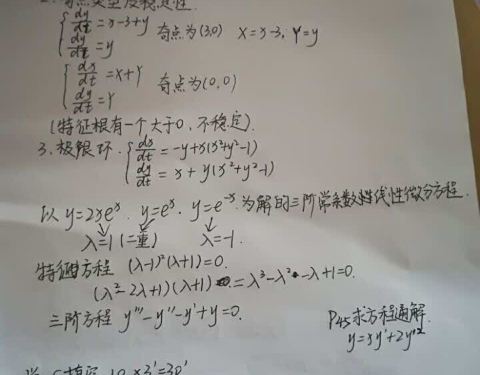 2. 奇点类型及稳定性.
{ dy/dt = x-3+y 奇点为(3,0) X=x-3, Y=y
dy/dt = y
{ dx/dt = X+Y 奇点为(0,0)
dy/dt = Y
(特征根有一个大于0, 不稳定).
3. 极限环. { dx/dt = -y+x(x²+y²-1)
dy/dt = x+y(x²+y²-1)
以 y=2xeˣ. y=eˣ. y=e⁻ˣ 为解的三阶常系数线性微分方程.
λ=1 (二重) λ=-1.
特征方程 (λ-1)²(λ+1)=0.
(λ²-2λ+1)(λ+1) = λ³-λ²-λ+1=0.
三阶方程 y'''-y''-y'+y=0.
P45求方程通解
y=xy'+2y'²
10×3'=30'